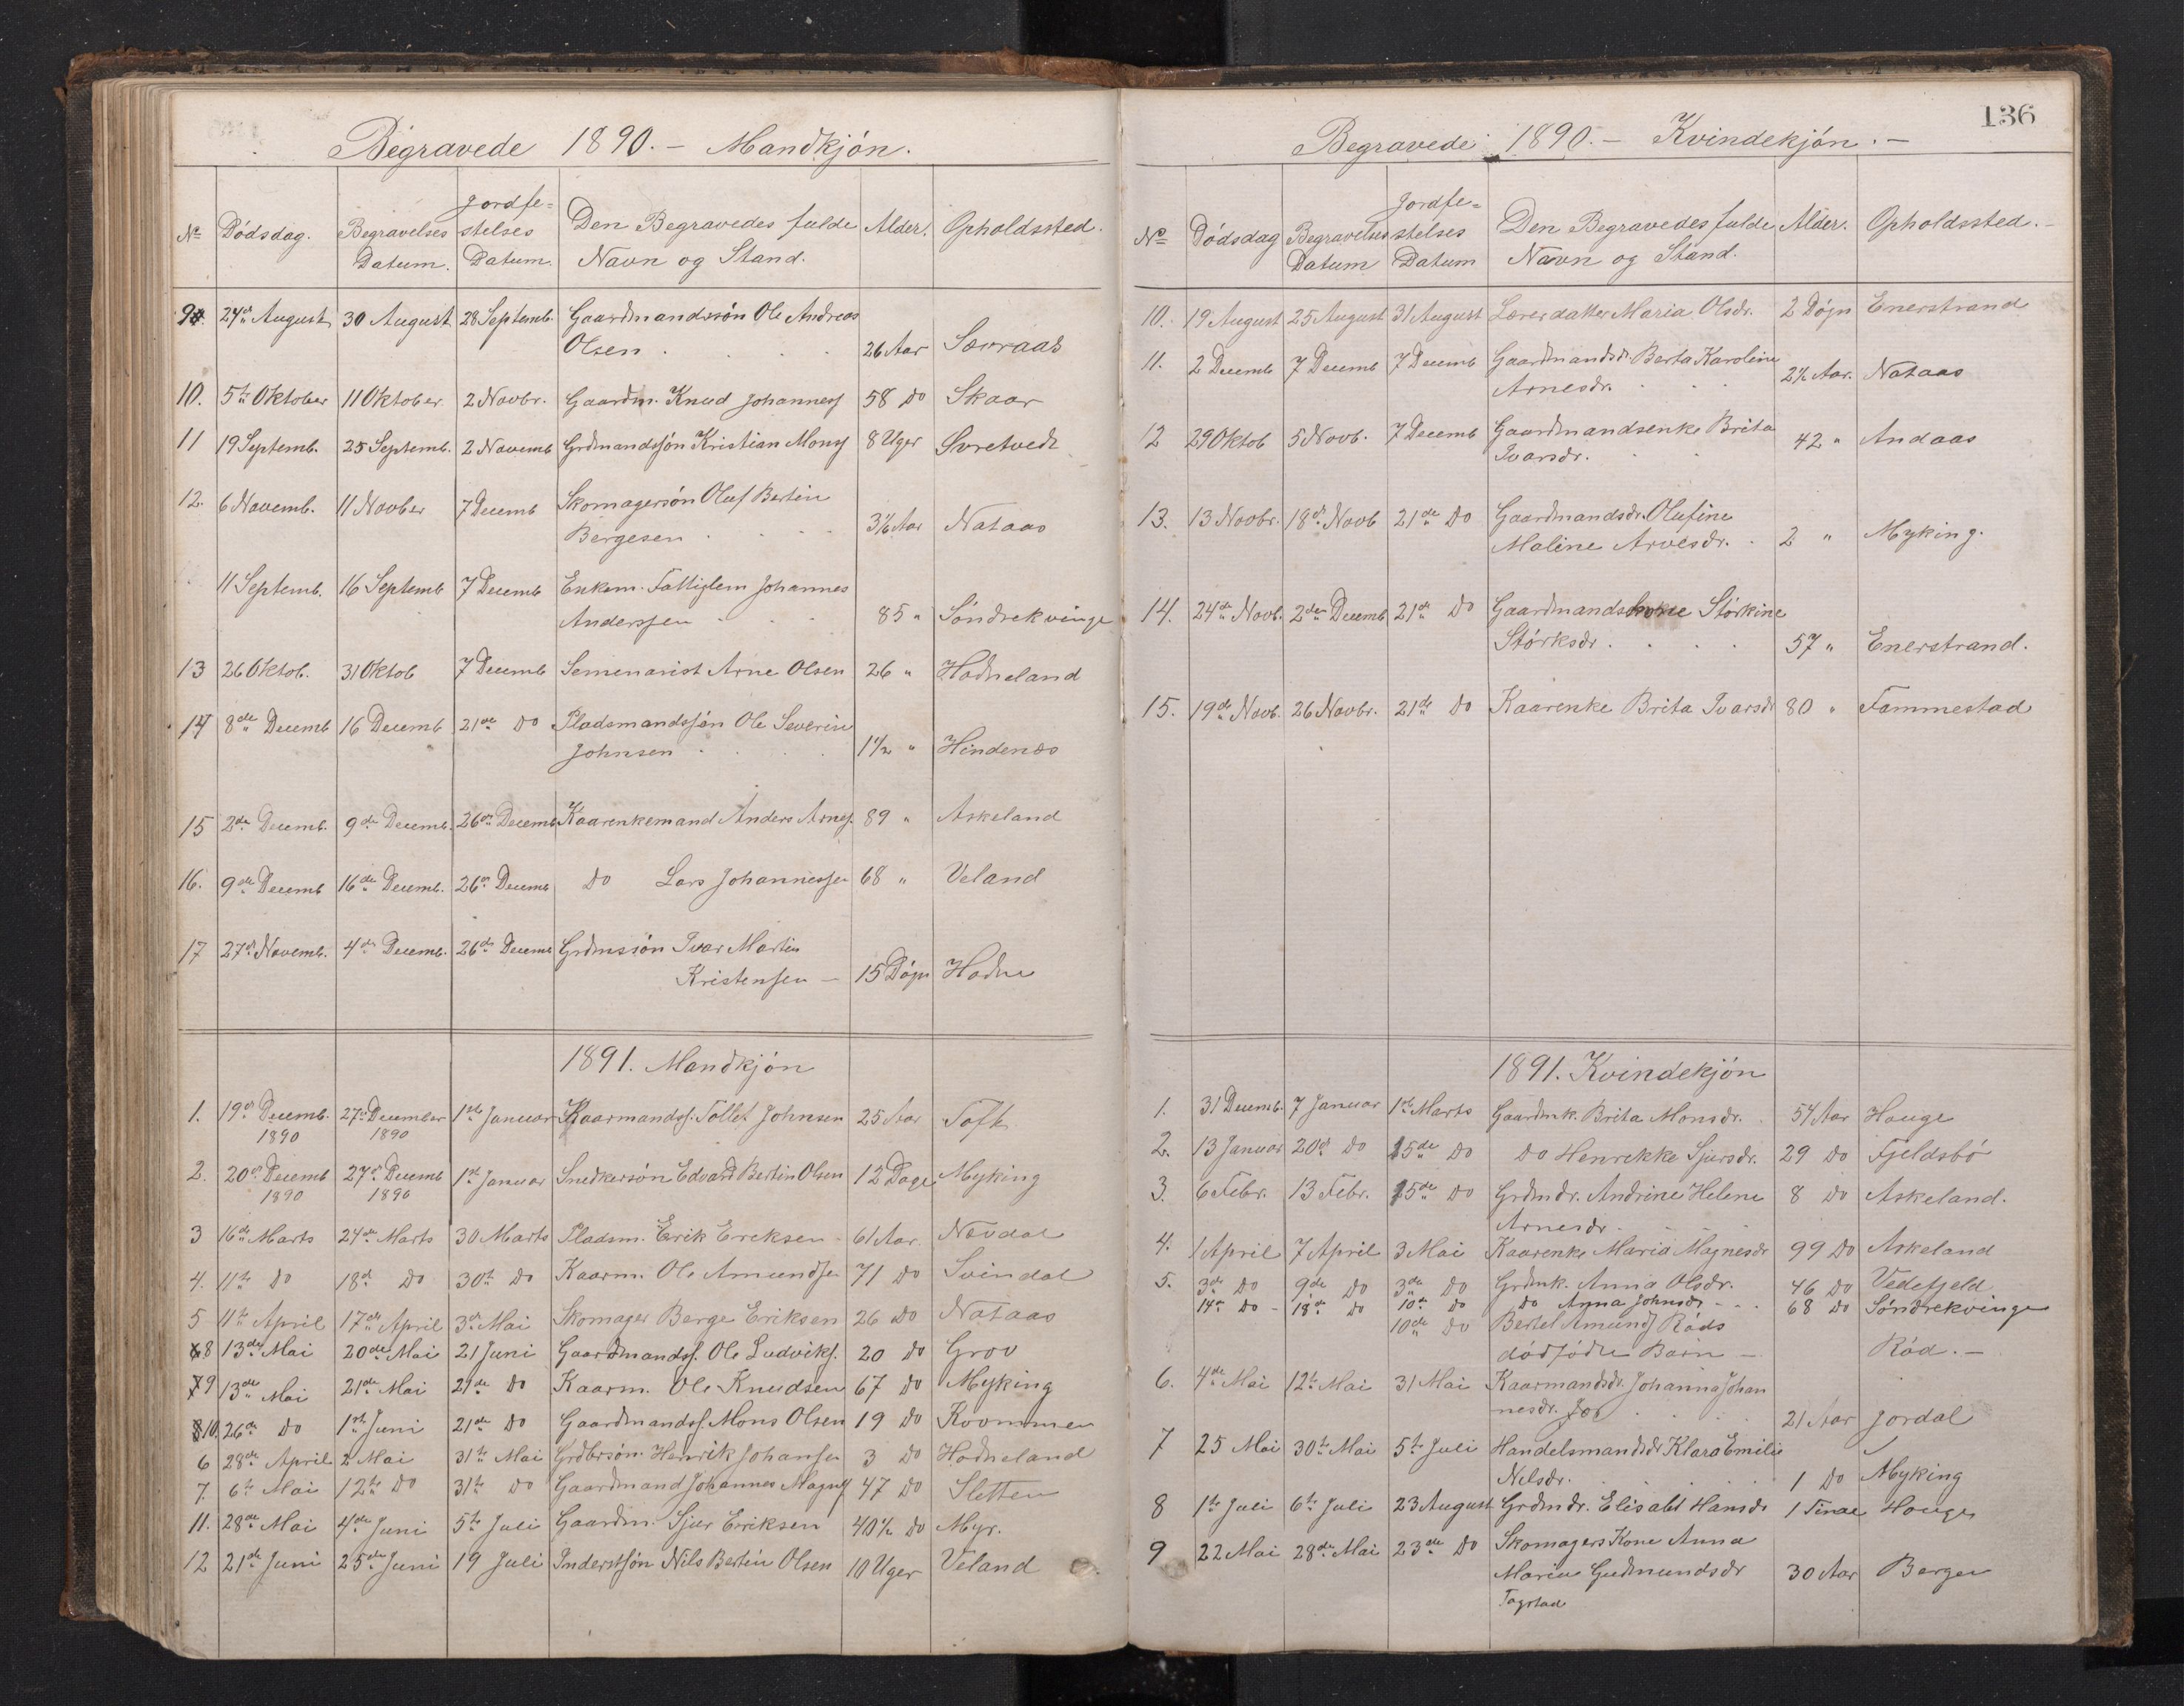 Begravede 1890. — Mandkjøn.
№ Dødsdag. Begravelses Datum. Jordfe=stelses Datum. Den Begravedes fulde Navn og Stand. Alder. Opholdssted.
9. 24de August 30 August 28 Septemb. Gaardmandssøn Ole Andreas
Olsen . . . 26 Aar Sævraas
10. 5te Oktober 11 Oktober 2 Novbr. Gaardm. Knud Johanness 58 Do Skaar
11 19 Septemb. 25 Septemb. 2 Novemb Grdmandssøn Kristian Monss 8 Uger Syretvedt
12. 6 Novemb. 11 Novber 7 Decemb Skomagersøn Oluf Bertin
Bergesen . . . 3½ Aar Nataas
11 Septemb. 16 Septemb 7 Decemb Enkem. Fattiglem Johannes
Anderssen . . . 85 " Søndrekvinge
13 26 Oktob. 31 Oktob 7 Decemb Semenarist Arne Olsen 26 " Hodneland
14 8de Decemb 16 Decemb 21de Do Pladsmandssøn Ole Severin
Johnsen . . . 1½ " Hindenæs
15 2de Decemb. 9de Decemb. 26de Decemb Kaarenkemand Anders Arnes. 89 " Askeland
16. 9de Decemb 16de Decemb. 26de Decemb Do Lars Johannessen 68 " Veland
17 27de Novemb. 4de Decemb. 26de Decemb Grdmssøn Ivar Martin
Kristensen — 15 Døgn Hodne
1891. Mandkjøn
1. 19de Decemb. 1890 27de December 1890 1ste Januar Kaarmandss. Tollef Johnsen 25 Aar Toft
2. 20de Decemb 1890 27de Decemb 1890 1ste Januar Snedkersøn Edvard Bertin Olsen 12 Dage Myking
3 16de Marts 24de Marts 30 Marts Pladsm. Erik Ereksen 61 Aar. Nævdal
4. 11te Do 18de Do 30te Do Kaarm. Ole Amundsen 71 Do Svindal
5 11te April 17de April 3de Mai Skomager Berge Eriksen 26 Do Nataas
8 13de Mai 20de Mai 21 Juni Gaardmandss. Ole Ludviks. 20 Do Grov
9 13de Mai 21de Mai 21de Do Kaarm. Ole Knudsen 67 Do Myking
10. 26de Do 1ste Juni 21de Do Gaardmandss. Mons Olsen 19 Do Kvommen
6 28de April 2 Mai 31te Mai Grdbrsøn. Henrik Johansen 3 Do Hodneland
7. 6te Mai 12te Do 31te Do Gaardmand Johannes Magness 47 Do Sletten
11. 28de Mai 4de Juni 5te Juli Gaardm. Sjur Eriksen 40½ Do Myr.
12 21de Juni 25de Juni 19 Juli Inderstsøn Nils Bertin Olsen 10 Uger Veland
136
Begravede 1890. — Kvindekjøn. —
№ Dødsdag Begravelses Datum Jordfe=stelses Datum Den Begravedes fulde Navn og Stand. Alder. Opholdssted. —
10. 19 August 25 August 31 August Lærerdatter Maria Olsdr. 2 Døgn Enerstrand
11. 2 Decemb 7 Decemb 7 Decemb Gaardmandsdr. Berta Karoline
Arnesdr. . . . 2½ Aar. Nataas
12 29 Oktob 5 Novb. 7 Decemb Gaardmandsenke Brita
Ivarsdr. . . 42 " Andaas
13. 13 Novbr. 18de Novb 21de Do Gaardmandsdr. Olufine
Maline Arvesdr. . 2 " Myking.
14. 24de Novb. 2den Decemb 21de Do Gaardmandskone Størkine
Størksdr . . . 57 " Enerstrand.
15. 19de Novb. 26 Novbr. 21de Do Kaarenke Brita Ivarsdr 80 " Fammestad
1891. Kvindekjøn
1. 31 Decemb. 7 Januar 1ste Marts Gaardmk. Brita Monsdr. 54 Aar Hauge
2. 13 Januar 20de Do 15de Do Do Henrikke Sjursdr. 29 Do Fjeldsbø
3. 6 Febr. 13 Febr. 15de Do Grdmdr. Andrine Helene 8 Do Askeland.
Arnesdr . . .
4. 1 April 7 April 3 Mai Kaarenke Maria Magnesdr 99 Do Askeland
5. 3de Do 9de Do 3de Do Grdmk. Anna Olsdr. 46 Do Vedefjeld
14de Do 18de Do 10de Do Do Anna Johnsdr . . . 68 Do Søndrekvinge
10de Do Bertel Amunds Røds
dødfødte Barn — Rød. —
6. 4de Mai 12te Mai 31 Mai Kaarmandsdr. Johanna Johan
nesdr. Jor . . . 21 Aar Jordal
7 25 Mai 30te Mai 5te Juli Handelsmandsdr Klara Emilie
Nelsdr. . . . 1 Do Myking
8 1ste Juli 6te Juli 23 August Grdmdr. Elisabt Hansdr 1 Time Hauge
9 22 Mai 28de Mai 23de Do Skomagers Kone Anna
Marie Gudmundsdr 30 Aar Bergen
Tagstad